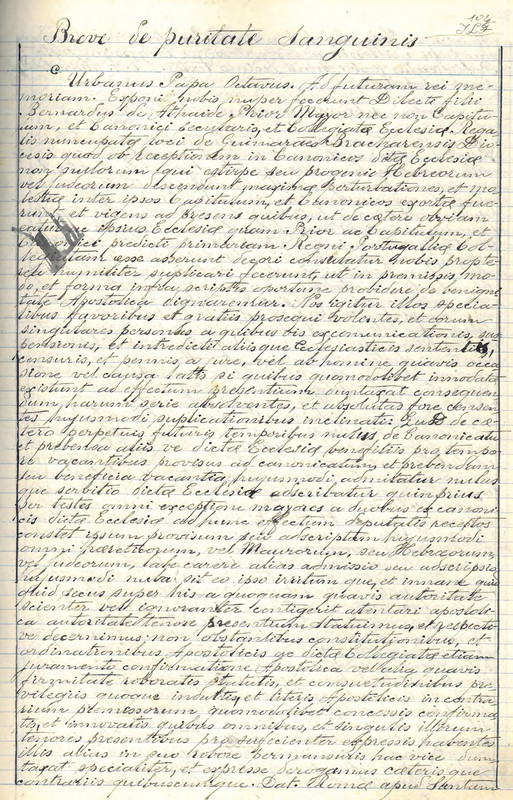 104
Breve de puritate Sanguinis
Urbanus Papa Octavus. Ad futuram rei me-
moriam. Exponi nobis nuper fecerunt Dilecti filii
Bernardus de Athaide Prior Mayor nec non Capitu-
lum, et Canonici Secularis, et Collegiatæ Ecclesiæ Rega-
lis nuncupatæ loci de Guimaraes Bracharensis Dio-
cesis quod ob receptionem in Canonicos dictæ Ecclesiæ
non nullorum, qui estirpe seu progenie Hebreorum
vel Judeorum descendunt maximæ perturbationes, et mo-
lestiæ inter ipsos Capitulum, et Canonicos exortæ fue-
runt et vigent ad presens quibus, ut de cætero obviam
eatur ipsius Ecclesiæ quam Prior ac Capitulum, et
Canonici predicti primoriam Regni Portugaliæ Col-
legiatam esse asserunt decori consulatur nobis propte-
rea humiliter suplicari fecerunt, ut in premissis, mo-
do, et forma infra scriptis oportune providere de benigni-
tate Apostolica dignaremur. Nos igitur illos specia-
libus favoribus et gratiis prosequi volentes, et eorum
singulares personas a quibus bis excomunicationis, sus
pensiones, et interdicti aliisque Ecclesiasticis sententiis,
censuris, et pennis, a jure, vel ab homine quavis occa
sione vel causa latis si quibus quomodolibet innodatæ
existunt ad effectum presentium dumtaxat consequen
dum, harum serie absolventes, et absolutas fore censen
tes hujusmodi suplicationibus inclinati: quod de cæ-
tero perpetuis futuris temporibus nullus, de Canonicatu
et prebenda aliis ve dictæ Ecclesiæ benefitiis pro tempo
re vacantibus provisus ad canonicatum, et prebendam
seu beneficia vacantia hujusmodi admitatur nulus
que servitio dictæ Ecclesiæ adscribatur quin prius
per testes omni exceptione mayores a duobus ex canoni
cis dictæ Ecclesiæ ad hunc effectum deputatis receptos
constet ipsum provisum seu adscriptum hujusmodi
omni hæreticorum, vel Maurorum, seu Hebræorum,
vel Judeorum, labe carere alias admissio seu adscriptio
hujusmodi nula sit eo ipso irritum que, et innane quid
quid secus super his a quoquam quavis autoritate
scienter vel ignoranter contigerit atentari apostoli-
ca autoritate tenore presentium Statuimus, et respecti
ve decernimus: non obstantibus constitutionibus, et
ordinationibus Apostolicis ac dictæ Collegiatæ etiam
juramento confirmatione Apostolica vel alia quavis
firmitate roboratis statutis, et consuetudinibus pre
vilegiis quoque indultis, et literis Apostolicis in contra
rium premissorum, quomodolibet concessis confirma
tis, et innovatis quibus omnibus, et singulis illorum
tenores presentibus pro suficienter expressis habentes
illis alias in suo robore permansuris hac vice dum
taxat specialiter, et expresse derogamus cæteris que
contrariis quibuscumque. Dat. Romæ apud Sanctam